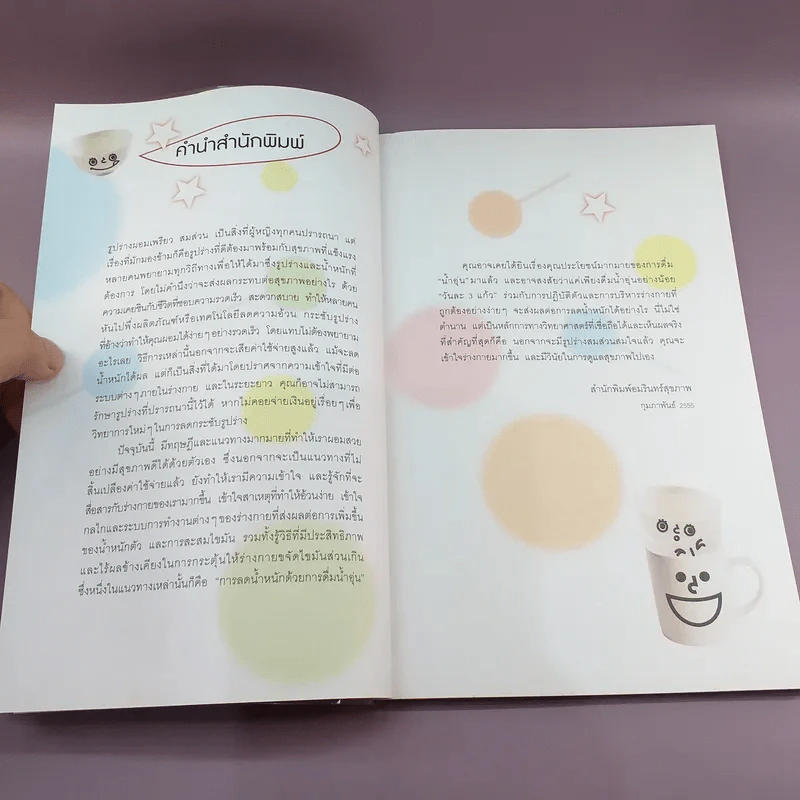 คำนำสำนักพิมพ์
รูปร่างผอมเพรียว สมส่วน เป็นสิ่งที่ผู้หญิงทุกคนปรารถนา แต่
เรื่องที่มักมองข้ามก็คือรูปร่างที่ดีต้องมาพร้อมกับสุขภาพที่แข็งแรง
หลายคนพยายามทุกวิถีทางเพื่อให้ได้มาซึ่งรูปร่างและน้ำหนักที่
ต้องการ โดยไม่คำนึงว่าจะส่งผลกระทบต่อสุขภาพอย่างไร ด้วย
ความเคยชินกับชีวิตที่ชอบความรวดเร็ว สะดวกสบาย ทำให้หลายคน
หันไปพึ่งผลิตภัณฑ์หรือเทคโนโลยีลดความอ้วน กระชับรูปร่าง
ที่อ้างว่าทำให้คุณผอมได้ง่ายๆ อย่างรวดเร็ว โดยแทบไม่ต้องพยายาม
อะไรเลย วิธีการเหล่านี้นอกจากจะเสียค่าใช้จ่ายสูงแล้ว แม้จะลด
น้ำหนักได้ผล แต่ก็เป็นสิ่งที่ได้มาโดยปราศจากความเข้าใจที่มีต่อ
ระบบต่างๆ ภายในร่างกาย และในระยะยาว คุณก็อาจไม่สามารถ
รักษารูปร่างที่ปรารถนานี้ไว้ได้ หากไม่คอยจ่ายเงินอยู่เรื่อยๆ เพื่อ
วิทยาการใหม่ๆ ในการลดกระชับรูปร่าง
ปัจจุบันนี้ มีทฤษฎีและแนวทางมากมายที่ทำให้เราผอมสวย
อย่างมีสุขภาพดีได้ด้วยตัวเอง ซึ่งนอกจากจะเป็นแนวทางที่ไม่
สิ้นเปลืองค่าใช้จ่ายแล้ว ยังทำให้เรามีความเข้าใจ และรู้จักที่จะ
สื่อสารกับร่างกายของเรามากขึ้น เข้าใจสาเหตุที่ทำให้อ้วนง่าย เข้าใจ
กลไกและระบบการทำงานต่างๆ ของร่างกายที่ส่งผลต่อการเพิ่มขึ้น
ของน้ำหนักตัว และการสะสมไขมัน รวมทั้งรู้วิธีที่มีประสิทธิภาพ
และไร้ผลข้างเคียงในการกระตุ้นให้ร่างกายขจัดไขมันส่วนเกิน
ซึ่งหนึ่งในแนวทางเหล่านั้นก็คือ "การลดน้ำหนักด้วยการดื่มน้ำอุ่น"
คุณอาจเคยได้ยินเรื่องคุณประโยชน์มากมายของการดื่ม
"น้ำอุ่น" มาแล้ว และอาจสงสัยว่าแค่เพียงดื่มน้ำอุ่นอย่างน้อย
"วันละ 3 แก้ว" ร่วมกับการปฏิบัติตัวและการบริหารร่างกายที่
ถูกต้องอย่างง่ายๆ จะส่งผลต่อการลดน้ำหนักได้อย่างไร นี่ไม่ใช่
ตำนาน แต่เป็นหลักการทางวิทยาศาสตร์ที่เชื่อถือได้และเห็นผลจริง
ที่สำคัญที่สุดก็คือ นอกจากจะมีรูปร่างสมส่วนสมใจแล้ว คุณจะ
เข้าใจร่างกายมากขึ้น และมีวินัยในการดูแลสุขภาพไปเอง
สำนักพิมพ์อมรินทร์สุขภาพ
กุมภาพันธ์ 2555